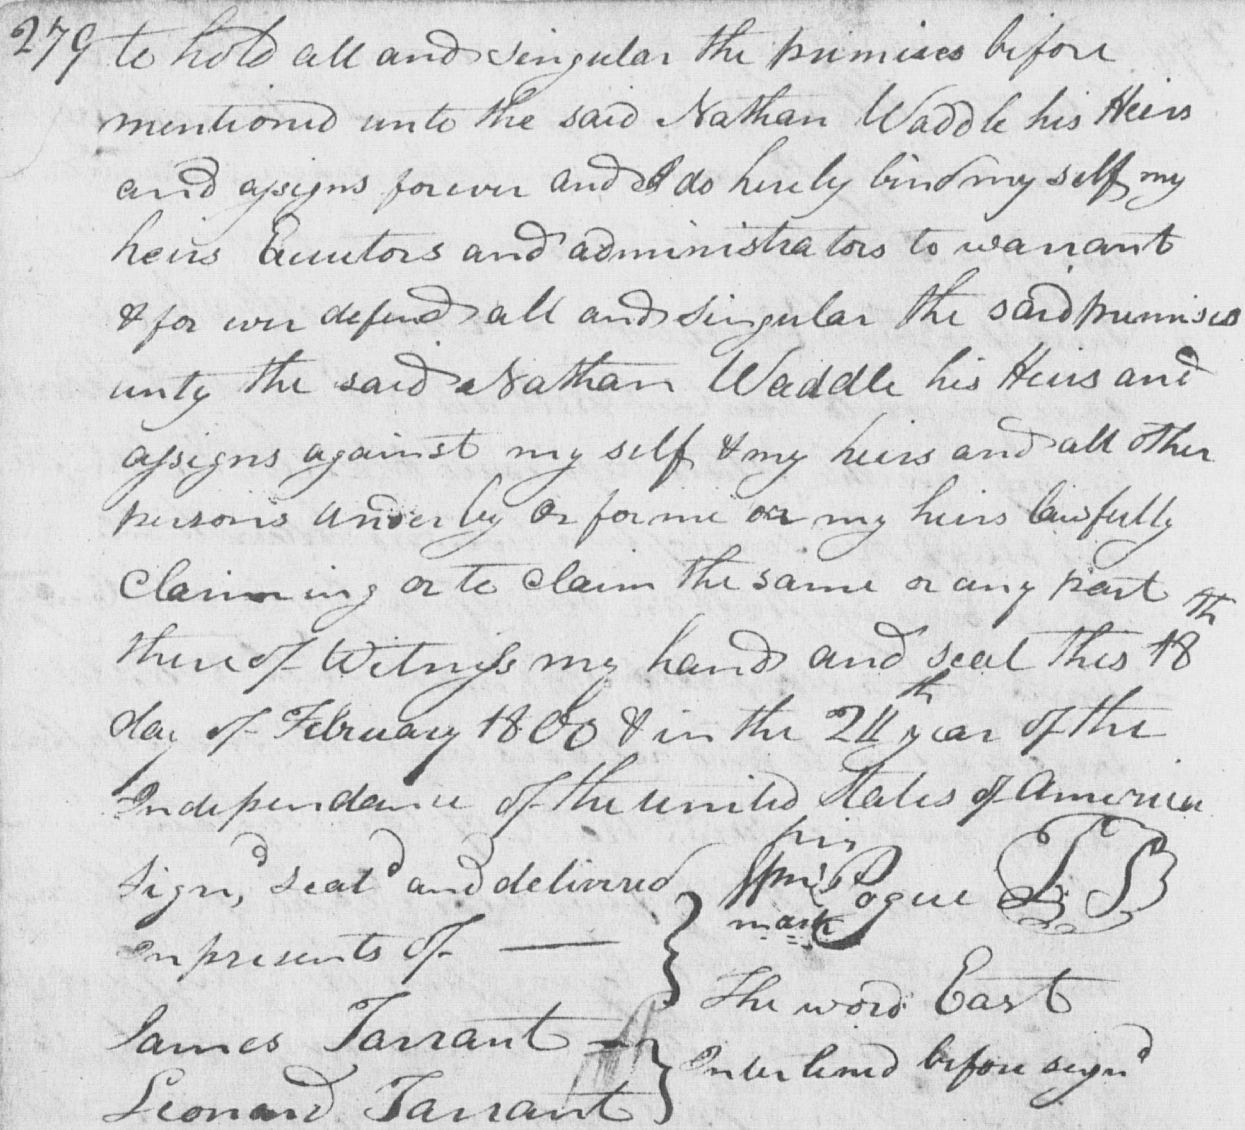 279 to hold all and singular the primises before
mentioned unto the said Nathan Waddle his Heirs
and assigns forever and I do hereby bind my self my
heirs Executors and administrators to warrant
& for ever defend all and singular the said primises
unty the said Nathan Waddle his Heirs and
assigns against my self & my heirs and all other
persons under by or for me or my heirs lawfully
claiming or to claim the same or any part
there of Witness my hand and seal this 18th
day of February 1800 & in the 24th year of the
Independance of the united States of America
Sign,d seald and delivered
in presents of
his
Pogue LS
mark
The word East
Interlined before signd
James Tarrant
Leonard Tarrant